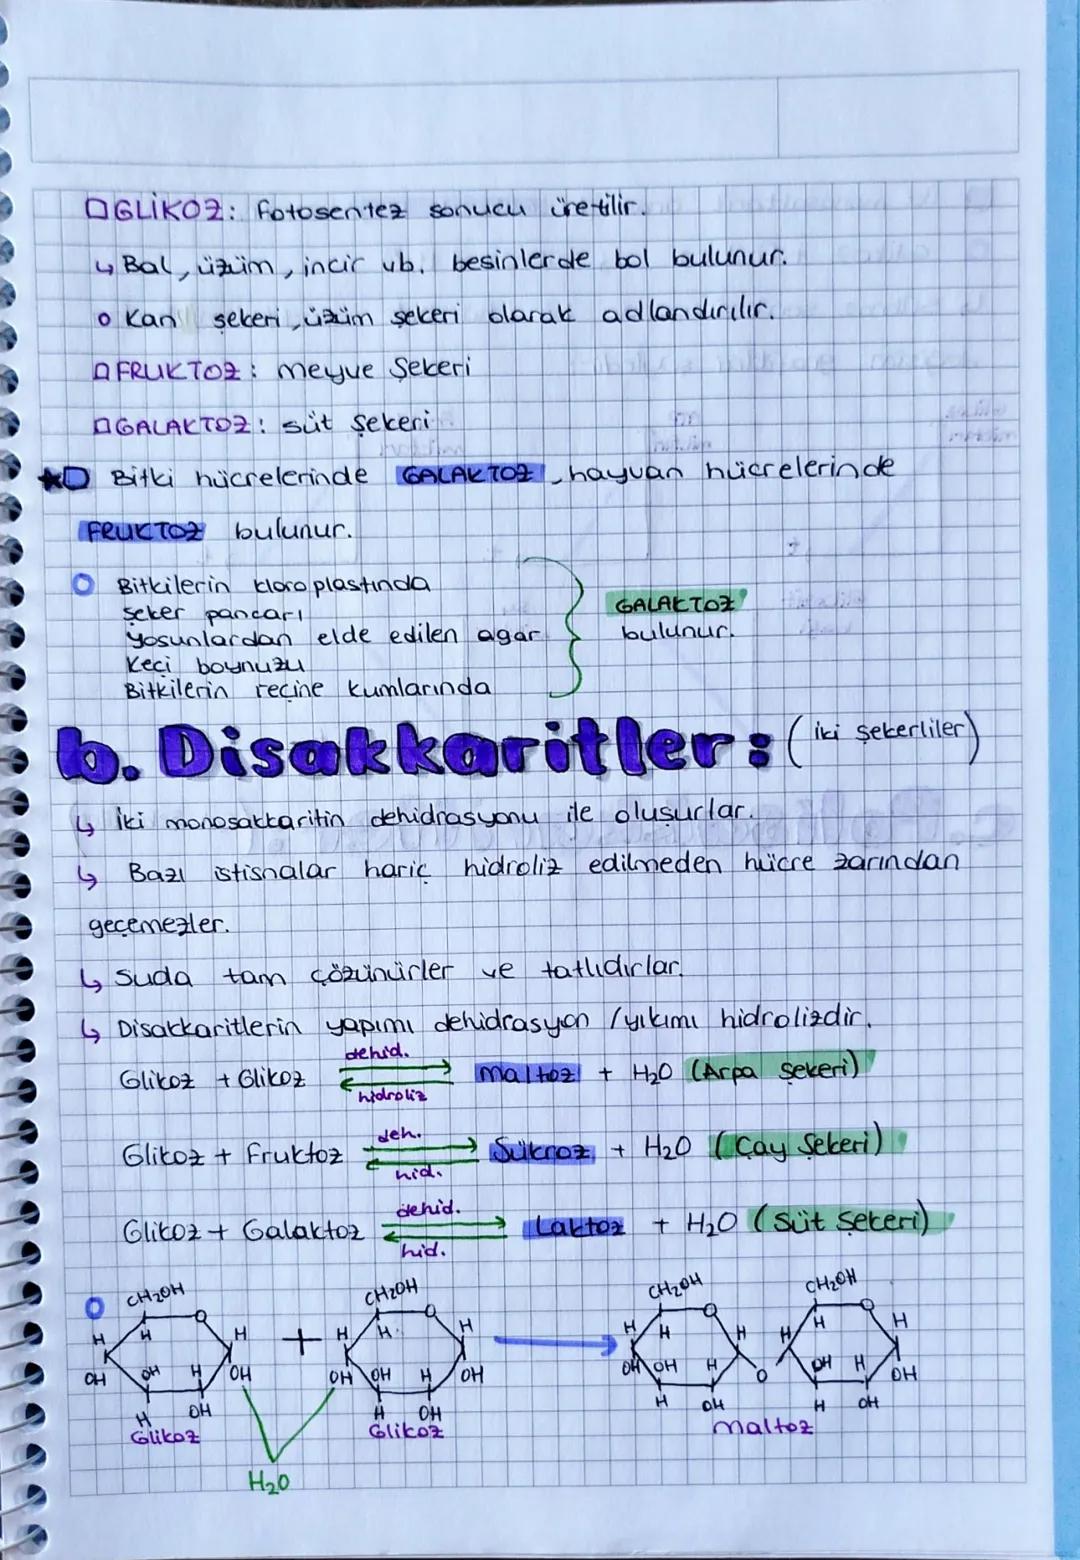 GLİKOZ: Fotosentez sonucu üretilir.
↳ Bal, üzüm, incir vb. besinlerde bol bulunur.
o Kan şekeri, üzüm şekeri olarak adlandırılır.
FRUKTOZ: meyve Şekeri
GALAKTOZ: süt şekeri
Bitki hücrelerinde GALAKTOZ, hayvan hücrelerinde
FRUKTOZ bulunur.
Bitkilerin kloroplastında
şeker pancarı
yosunlardan elde edilen agar
Keçi boynuzu
Bitkilerin reçine kumlarında
GALAKTOZ
bulunur.
b. Disakkaritler: (iki şekerliler)
↳ İki monosakkaritin dehidrasyonu ile oluşurlar.
↳ Bazı istisnalar hariç hidroliz edilmeden hücre zarından
geçemezler.
↳ Suda tam çözünürler ve tatlıdırlar.
↳ Disakkaritlerin yapımı dehidrasyon / yıkımı hidrolizdir.
dehid.
Glikoz + Glikoz ⇄ maltoz + H₂O (Arpa şekeri)
hidroliz
deh.
Glikoz + Fruktoz ⇄ Sükroz + H₂O (Çay Şekeri)
hid.
dehid.
Glikoz + Galaktoz ⇄ Laktoz + H₂O (Süt Şekeri)
hid.
CH₂OH CH₂OH CH₂OH CH₂OH
O O O O
H H H + H H H → H H H H H H
OH OH H OH OH OH H OH OH OH H O OH H OH
H OH H OH H OH H OH
Glikoz Glikoz maltoz
H₂O